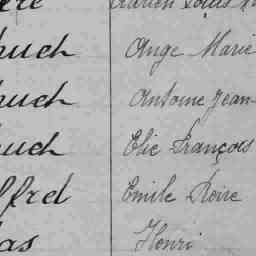 Adrien Louis
huch Ange Marie
huch Antoine Jean-
huch Elie François
ffred Emile
as Henri